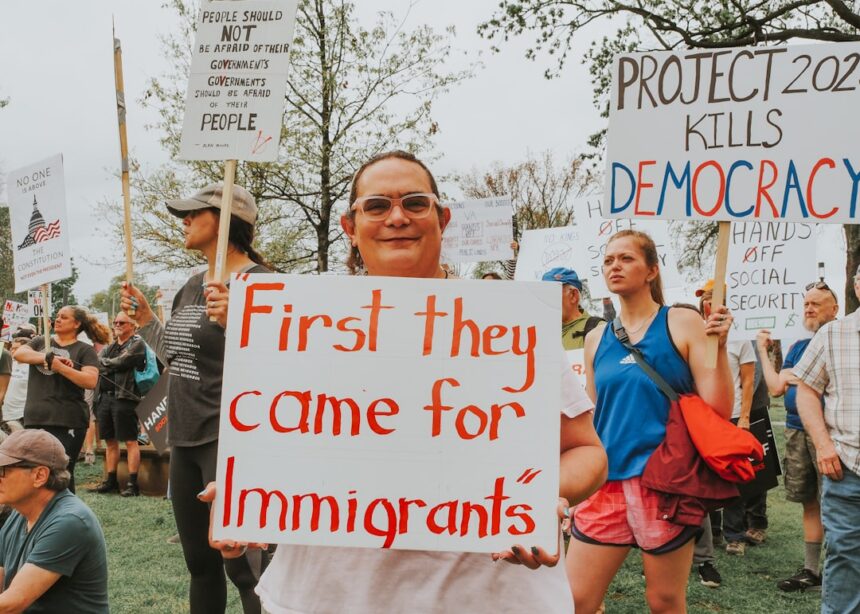 PEOPLE SHOULD
NOT
BE AFRAID OF THEIR
GOVERNMENTS
GOVERNMENTS
SHOULD BE AFRAID
OF THEIR
PEOPLE
NO ONE
IS ABOVE
THE
CONSTITUTION
"First they
came for
Immigrants"
PROJECT 202
KILLS
DEMOCRACY
HANDS
OFF
SOCIAL
SECURITY
VA
NO KINGS
HAND